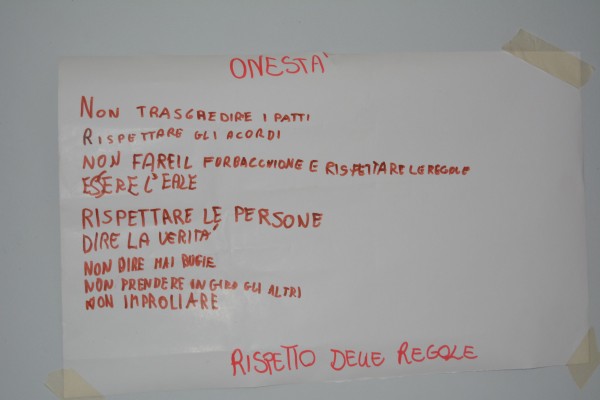 ONESTA'
NON TRASGREDIRE I PATTI
RISPETTARE GLI ACORDI
NON FAREIL FURBACCHIONE E RISPETTARE LE REGOLE
ESSERE L'EALE
RISPETTARE LE PERSONE
DIRE LA VERITA'
NON DIRE MAI BUGIE
NON PRENDERE IN GIRO GLI ALTRI
NON IMPROLIARE
RISPETTO DELLE REGOLE